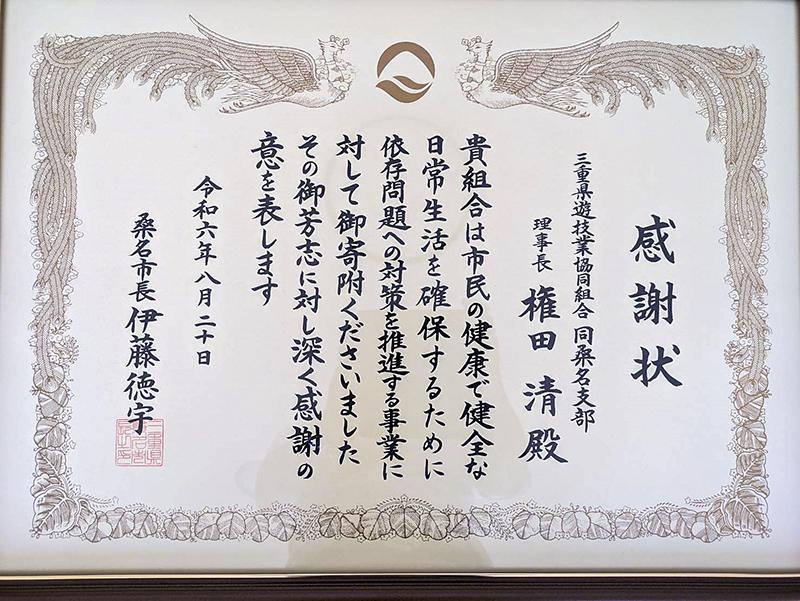 感謝状
三重県遊技業協同組合 同桑名支部
理事長 権田 清 殿
貴組合は市民の健康で健全な
日常生活を確保するために
依存問題への対策を推進する事業に
対して御寄附くださいました
その御芳志に対し深く感謝の
意を表します
令和六年八月二十日
桑名市長 伊藤徳宇